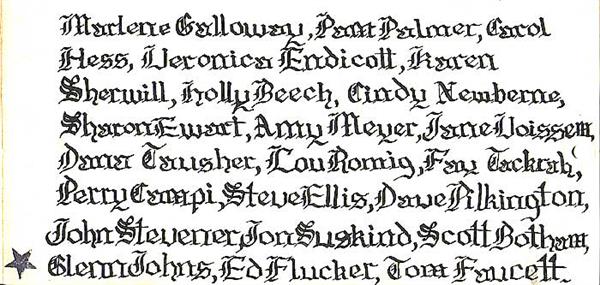 Marlene Galloway, Pam Palmer, Carol
Hess, Veronica Endicott, Karen
Sherwill, Holly Beech, Cindy Newberne,
Sharon Ewart, Amy Meyer, Jane Voissem,
Dana Tausher, Lou Romig, Fay Tackrah,
Perry Campi, Steve Ellis, Dave Pilkington,
John Stevener, Jon Suskind, Scott Botham,
Glenn Johns, Ed Flucker, Tom Faucett.